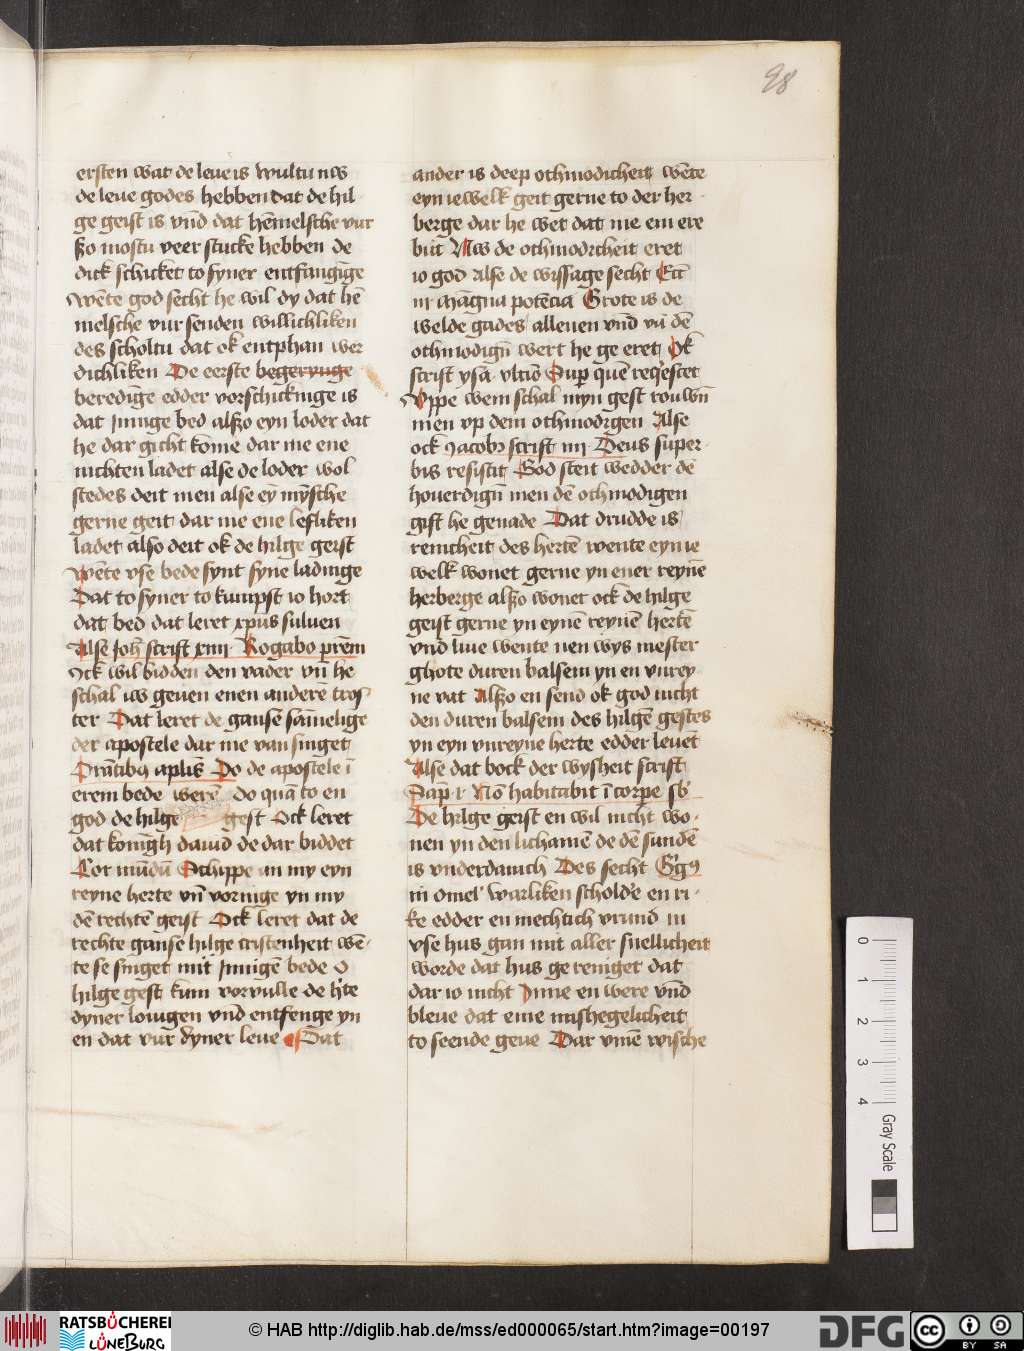 98
ersten wat de leue is wultu nw
de leue godes hebben dat de hil
ge geist is vnd dat hēmelsche vur
ßo mostu veer stucke hebben de
dick schicket to syner entfangīge
wēte god secht he wil dy dat hē
melsche vur senden willichliken
des scholtu dat ok entphan wer
dichliken De eerste begerynge
beredīge edder vorschickinge is
dat Innige bed alßo eyn loder dat
he dar gicht kōme dar me ene
nichten ladet alse de loder wol
stedes deit men alse eȳ mȳsche
gerne geit dar me ene lefliken
ladet also deit ok de hilge geist
wēte vse bede synt syne ladinge
Dat to syner to kumpst io hort
dat bed dat leret xpus suluen
Alse Joh̄ scrift xiiij Rogabo prēm
Ick wil bidden den vader vn̄ he
schal iw geuen enen anderē tros
ter Dat leret de ganse sāmelige
der apostele dar me van singet
Orātibꝯ aplīs Do de apostele ī
erem bede werē do quā to en
god de hilge geist Ock leret
dat konīgh dauid de dar biddet
Cor mūdū Schippe an my eyn
reyne herte vn̄ vornige yn my
dē rechtē geist Ock leret dat de
rechte ganse hilge cristenheit wē
te se singet mit Innigē bede O
hilge geist kum vorvulle de h'te
dyner louigen vnd entfenge yn
en dat vur dyner leue Dat
ander is deep othmodicheit wēte
eyn iewelk geit gerne to der her
berge dar he wet dat me em ere
biit Nw de othmodicheit eret
io god Alse de wissage secht Ecc̄
in magna potēcia Grote is de
welde gades alleuen vnd vā dē
othmodigū wert he ge eret Ok
scrift ysa vltīo Sup quē reqⁱescet
Vppe wem schal myn gest rouwn̄
men vp dem othmodigen Alse
ock Jacobꝯ scrift iiij Deus super
bis resistit God steit wedder dē
houerdigū men dē othmodigen
gift he genade Dat drudde is
reinicheit des hertē wente eyn ie
welk wonet gerne yn ener reynē
herberge alßo wonet ock de hilge
geist gerne yn eynē reynē hertē
vnd luue wente nen wys mester
ghote duren balsem yn en vnrey
ne vat Alßo en send ok god nicht
den duren balsem des hilgē gestes
yn eyn vnreyne herte edder leuēt
Alse dat bock der wysheit scrift
Sap̄ ı Nō habitabit ī corpe sb'
De hilge geist en wil nicht wo
nen yn den lichamē de dē sundē
is vnderdanich Des secht G'gꝯ
in omel' warliken scholde en ri
ke edder en mechtich vrund in
vse hus gan mit aller snellicheit
worde dat hus ge reniget dat
dar io nicht Inne en were vnd
bleue dat eme mishegelicheit
to seende geue Dar vmē wische
0
1
2
3
4
Gray Scale
RATSBÜCHEREI LÜNEBURG
© HAB http://diglib.hab.de/mss/ed000065/start.htm?image=00197
DFG
cc BY SA